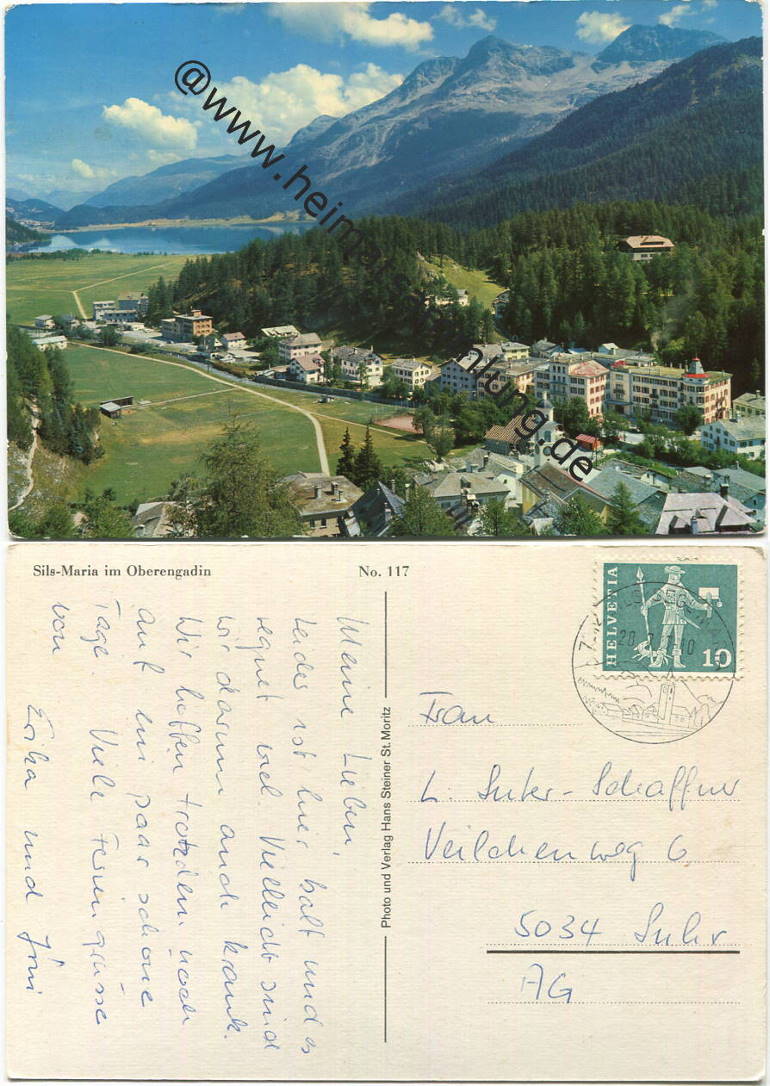 @www.heimatsammlung.de
Sils-Maria im Oberengadin
No. 117
Meine Lieben,
Leider ist hier kalt und es
regnet viel. Vielleicht sind
wir darum auch krank.
Wir hoffen trotzdem noch
auf ein paar schöne
Tage. Viele Feriengrüsse
von
Erika und
Photo und Verlag Hans Steiner St. Moritz
HELVETIA
10
Frau
L. Suter-Schaffner
Veilchenweg 6
5034 Suhr
AG